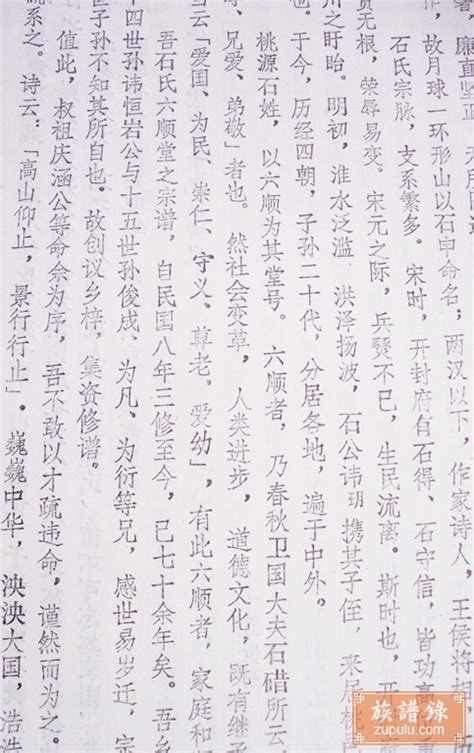 廉直坚正
，故月球一环形山以石申命名；两汉以下，作家诗人，王侯将相，
石氏宗脉，支系繁多。宋时，开封府有石得、石守信，皆功
无根，荣辱易变。宋元之际，兵燹不已，生民流离。斯时也，开
州之盱眙。明初，淮水泛滥 洪泽扬波，石公讳玥携其子侄，来居桃
也。于今，历经四朝，子孙二十代，分居各地，遍于中外。
桃源石姓，以六顺为其堂号。六顺者，乃春秋卫国大夫石碏所云
、兄爱、弟敬」者也。然社会变革，人类进步，道德文化，既有
当云「爱国、为民、崇仁、守义、尊老、爱幼」，有此六顺者，家庭和
吾石氏六顺堂之宗谱，自民国八年三修至今，已七十余年矣。吾乡
十四世孙讳恒岩公与十五世孙俊成、为凡、为衍等兄，感世易岁迁，宗
世子孙不知其所自也。故创议乡梓，集资修谱。
值此，叔祖庆涵公等命余为序，吾不敢以才疏违命，谨然而为之。
系之。诗云：「高山仰止，景行行止」。巍巍中华，泱泱大国，浩
族譜錄
zupulu.com